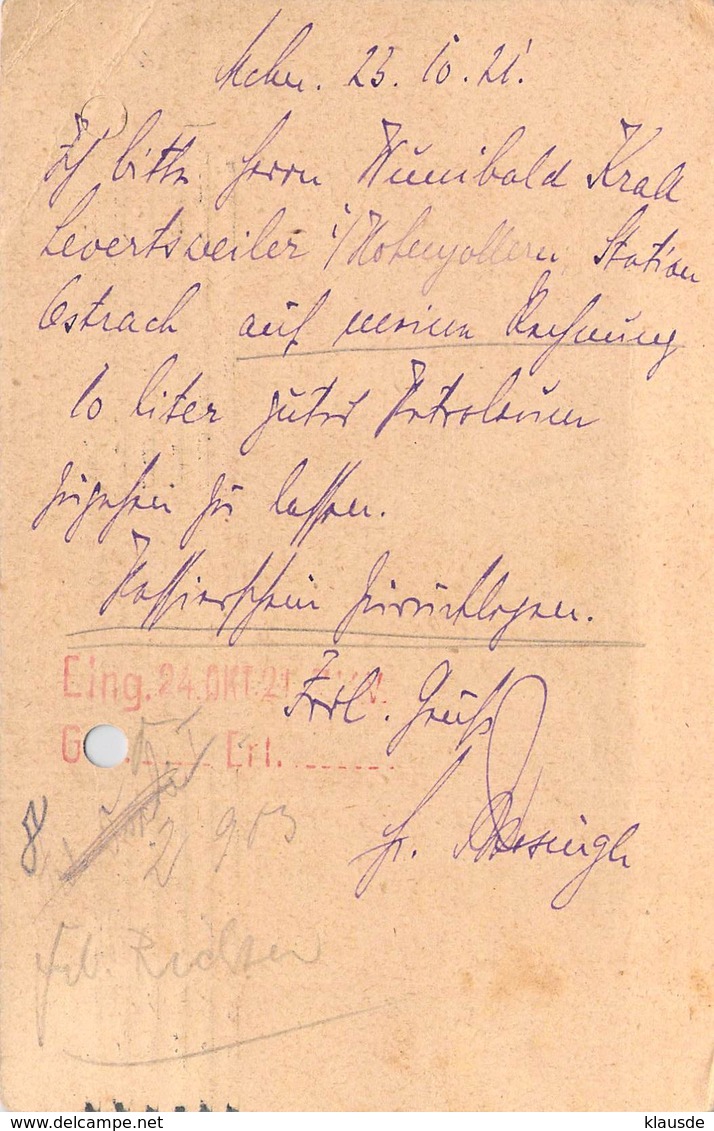 23.10.21.
Ich bitte Herrn Wunibald Krall
Levertsweiler i/Hohenzollern, Station
Ostrach auf meine Rechnung
10 Liter gutes Petroleum
zugehen zu lassen.
Kassierschein zurücklegen.
Eing. 24.OKT.21
Frdl. Gruß
G Erl.
8
2 903
Fr.
klausde